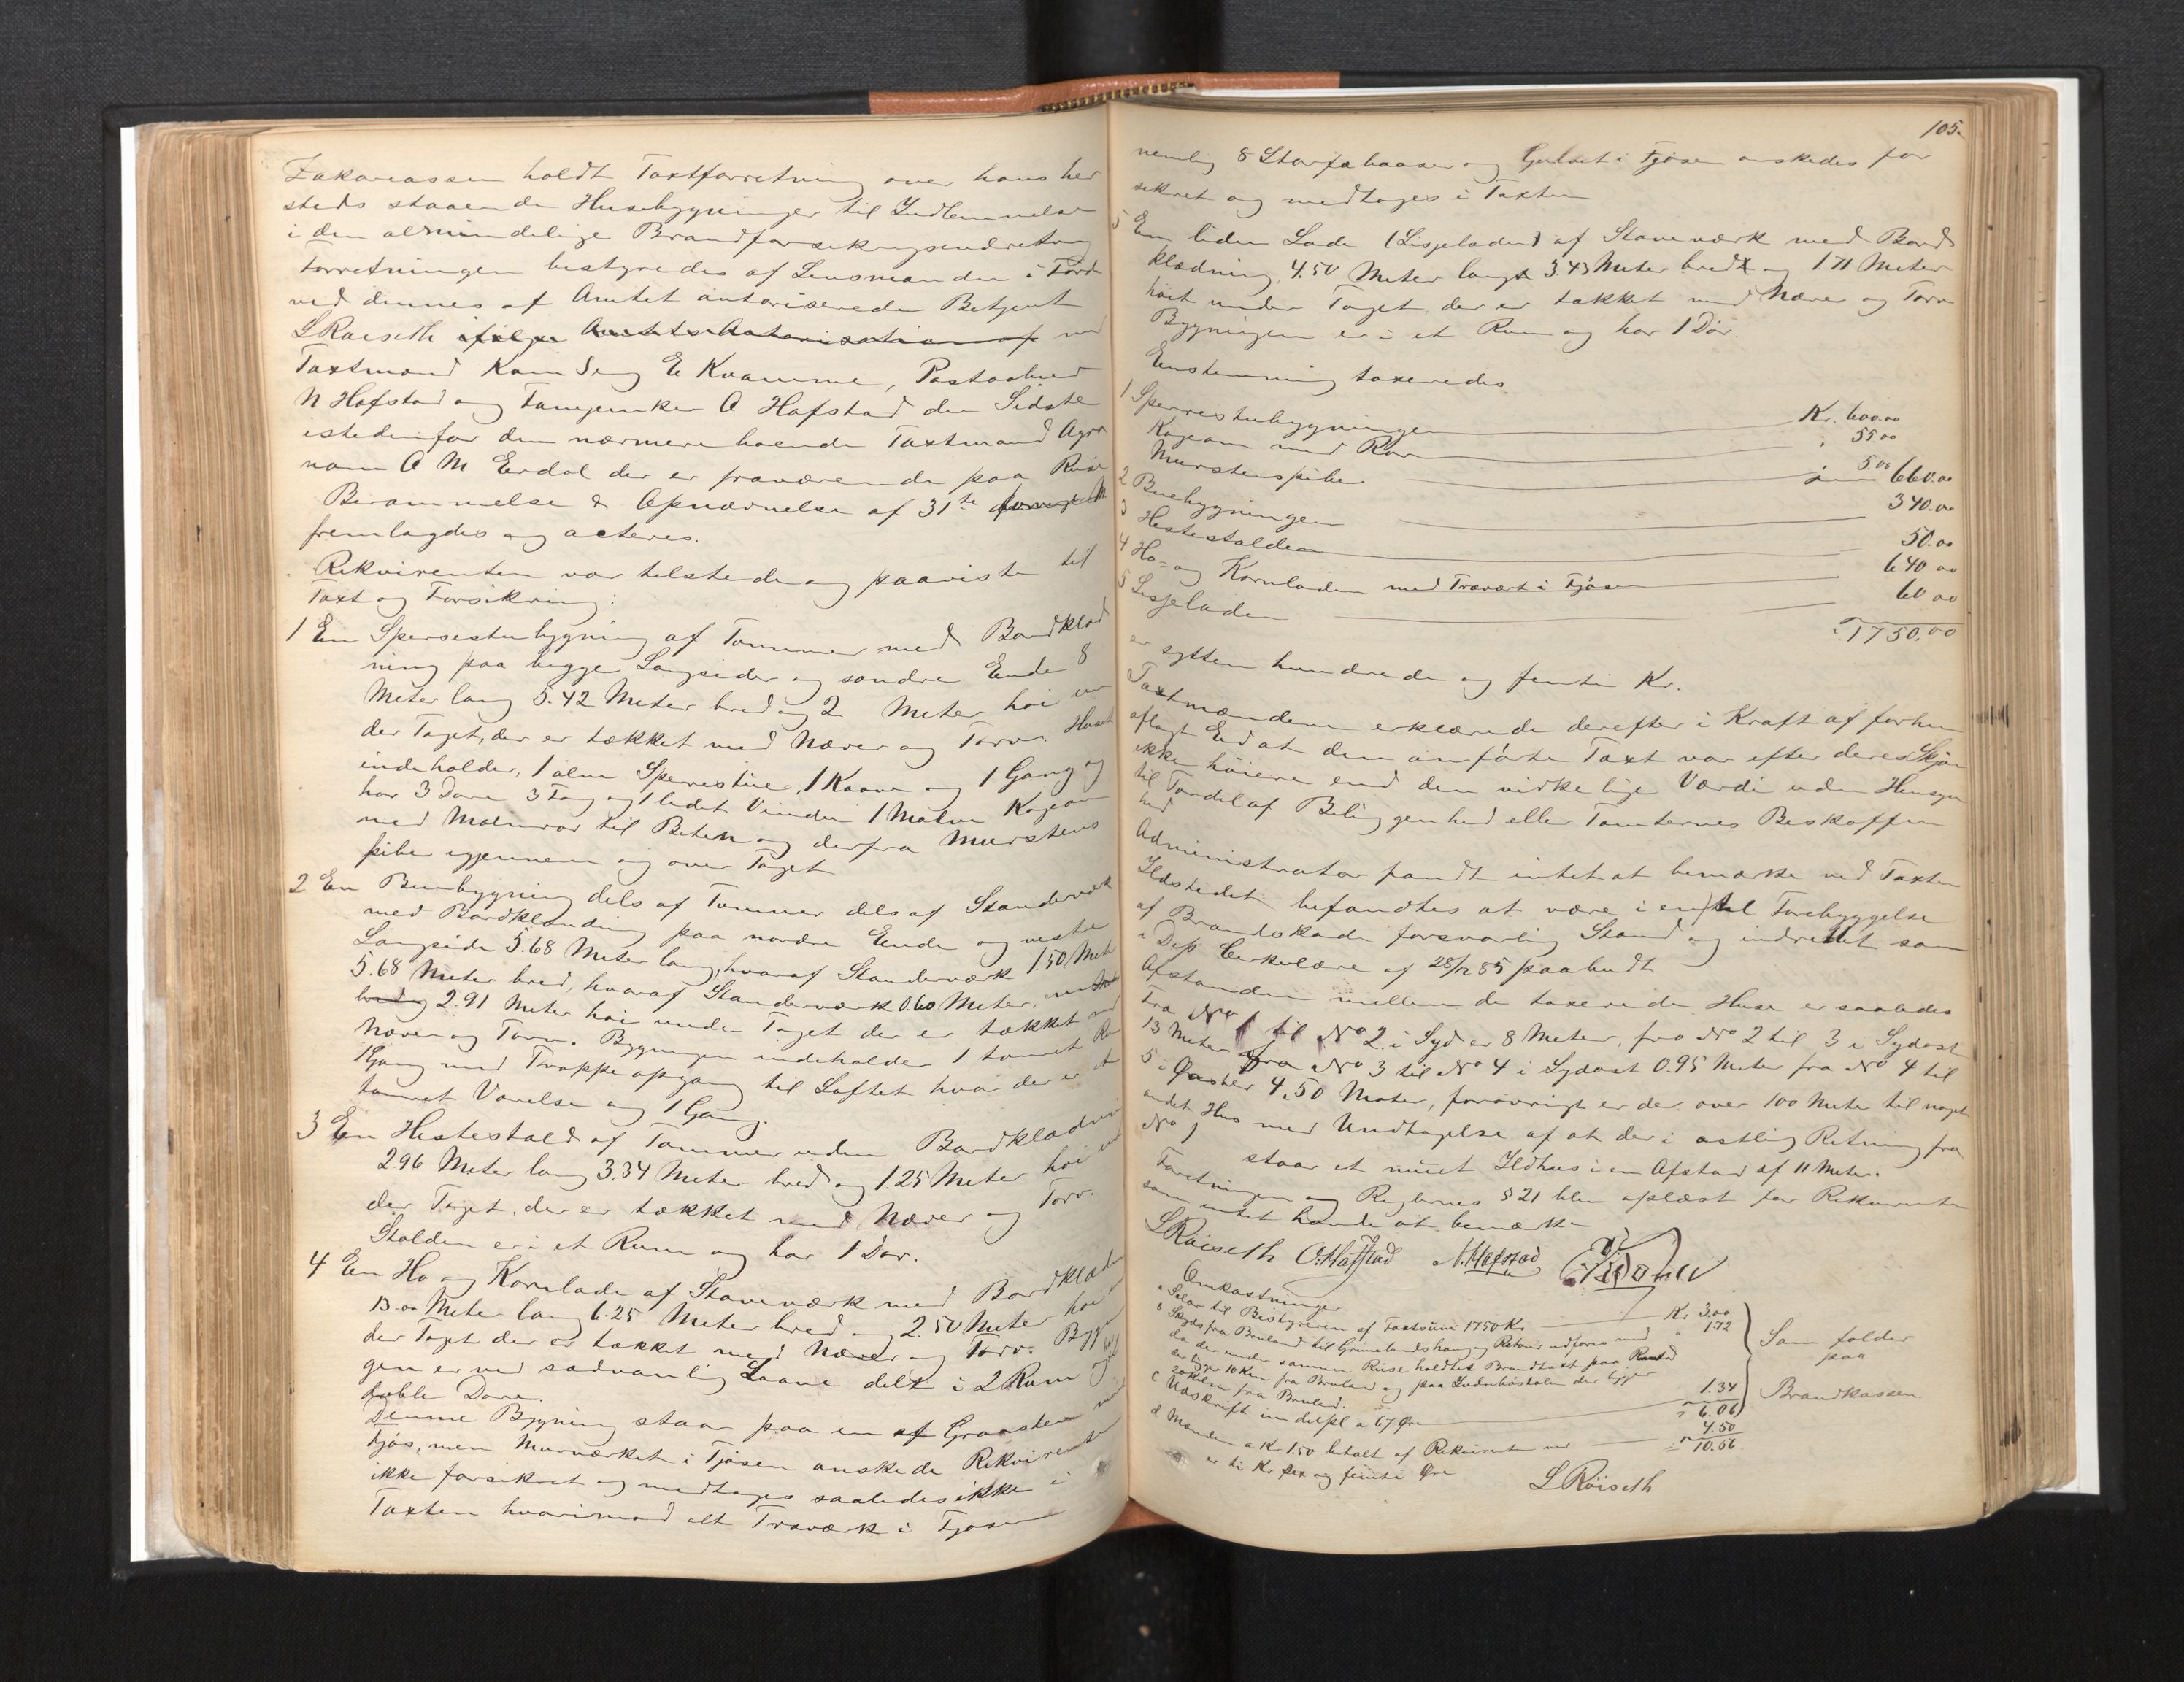 Zakariassen holdt Taxtforretning over hans her
steds staaende Husebygninger til Indlemmelse
i den almindelige Brandforsikringsindretning
Forretningen bestyredes af Lensmanden i Førde
ved dennes af Amtet autoriserede Betjent
L Røiseth ifølge Amtets Autorisation af med
Taxtmænd E Kvamme, Postaabner
N Hafstad og A Hafstad den Sidste
istedenfor den nærmere boende Taxtmand Agro
nom A M Erdal der er fraværende paa Reise
Berammelse & Opnævnelse af 31te
fremlagdes og acteres.
Rekvirenten var tilstede og paaviste til
Taxt og Forsikring:
1 En Sperrestubygning af Tømmer med Bordklæd
ning paa begge Langsider og søndre Ende 8
Meter lang 5.42 Meter bred og 2 Meter høi un
der Taget, der er tækket med Næver og Torv. Huset
indeholder, 1 alm Sperrestue, 1 Kove og 1 Gang og
har 3 Døre 3 Fag og 1 ledet Vinduer 1 Malm Kogeovn
med Malmrør til Beten og derfra Murstens
pibe igjennem og over Taget
2 En Buebygning dels af Tømmer dels af Standerværk
med Bordklædning paa nordre Ende og vestre
Langside 5.68 Meter lang, hvoraf Standerværk 1.50 Meter
5.68 Meter bred, hvoraf Standerværk 0.60 Meter,
bred og 2.91 Meter høi under Taget der er tækket med
Næver og Torv. Bygningen indeholder 1 tømret Rum
1 Gang med Trappeopgang til Loftet hvor der er et
tømret Værelse og 1 Gang.
3 En Hestestald af Tømmer uden Bordklædning
2.96 Meter lang 3.34 Meter bred og 1.25 Meter høi un
der Taget, der er tækket med Næver og Torv.
Stalden er i et Rum og har 1 Dør.
4 En Hø og Kornlade af Staveværk med Bordklædn
13.00 Meter lang 6.25 Meter bred og 2.50 Meter høi un
der Taget der er tækket med Næver og Torv. Bygnin
gen er ved sædvanlig Laave delt i 2 Rum og
dobble Døre.
Denne Bygning staar paa en af Graasten
Fjøs, men Murværket i Fjøsen ønskede Rekvirenten
ikke forsikret og medtages saaledes ikke i
Taxten hvorimod alt Træværk i Fjøsen
105.
nemlig 8 Storfabaaser og Gulvet i Fjøsen ønskedes for
sikret og medtages i Taxten
5 En liden Lade (Lisjeladen) af Staveværk med Bord
klædning, 4.50 Meter lang 3.43 Meter bred og 1.71 Meter
høit under Taget der er tækket med Næver og Torv
Bygningen er i et Rum og har 1 Dør.
Enstemmig taxeredes
1 Sperrestubygningen Kr. 600.00
Kogeovn med Rør " 55 00
Murstenspiben " 5.00 660.00
2 Buebygningen 340.00
3 Hestestalden 50.00
4 Hø- og Kornladen med Træværk i Fjøsen 640 00
5 Lisjeladen 60 00
1750.00
er sytten hundrede og femti Kr.
Taxtmændene erklærede derefter i Kraft af forhen
aflagt Eed at den anførte Taxt var efter deres Skjøn
ikke høiere end den virkelige Værdi uden Hensyn
til Fordel af Beliggenhed eller Tomternes Beskaffen
hed
Administrator fandt intet at bemærke ved Taxten
Ildstedet befandtes at være i en til Forebyggelse
af Brandskade forsvarlig Stand og indrettet som
i Dep Cirkulære af 28/12 85 paabudt
Afstanden mellem de taxerede Huse er saaledes
Fra No 1 til No 2 i Syd er 8 Meter, fra No 2 til 3 i Sydøst
13 Meter fra No 3 til No 4 i Sydøst 0.95 Meter fra No 4 til
5 i Øster 4.50 Meter, forøvrigt er der over 100 Meter til noget
andet Hus med Undtagelse af at der i østlig Retning fra
No 1 staar et muret Ildhus i en Afstand af 11 Meter.
Forretningen og Reglernes § 21 blev oplæst for Rekvirenten
som intet havde at bemærke
L Røiseth O. Hafstad N. Hafstad
Omkostninger
a Salær til Bestyreren af Taxtsum 1750 Kr Kr 3.00
b Skyds fra Bruland til Grimelandshaug og Retour udføres med " 1.72
da der under samme Reise holdtes Brandtaxt paa
der ligger 10 Km fra Bruland og paa der ligger
20 Klm fra Bruland.
c Udskrift a 67 Øre 1.34
" 6.06
Som falder
paa
Brandkassen
d Mændene a Kr 1.50 betalt af Rekvirenten med 4.50
" 10.56
er ti Kr sex og femti Øre
L Røiseth